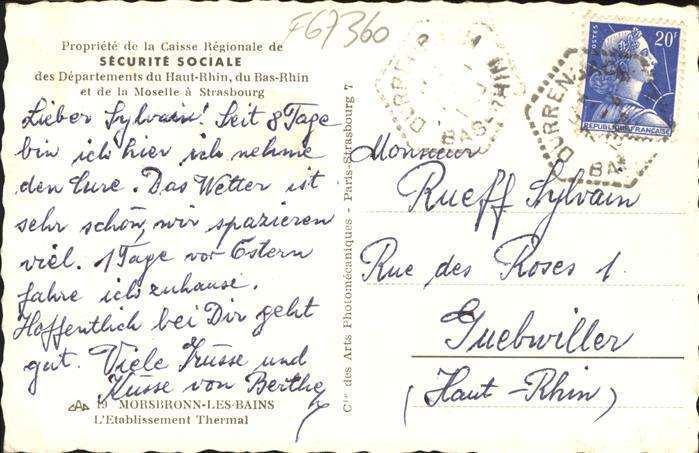 F67360
Propriété de la Caisse Régionale de
SÉCURITÉ SOCIALE
des Départements du Haut-Rhin, du Bas-Rhin
et de la Moselle à Strasbourg
Lieber Sylvain! Seit 8 Tage
bin ich hier ich nehme
den Cure. Das Wetter ist
sehr schön, wir spazieren
viel. 1 Tage vor Ostern
fahre ich zuhause.
Hoffentlich bei Dir geht
gut. Viele Grüsse und
Küsse von Berthe
19 MORSBRONN-LES-BAINS
L'Etablissement Thermal
Cie des Arts Photomécaniques - Paris-Strasbourg 7
POSTES
20F
REPUBLIQUE FRANÇAISE
DURREN
BAS RHIN
DURREN
BAS
Monsieur
Rueff Sylvain
Rue des Roses 1.
Guebwiller
(Haut-Rhin)